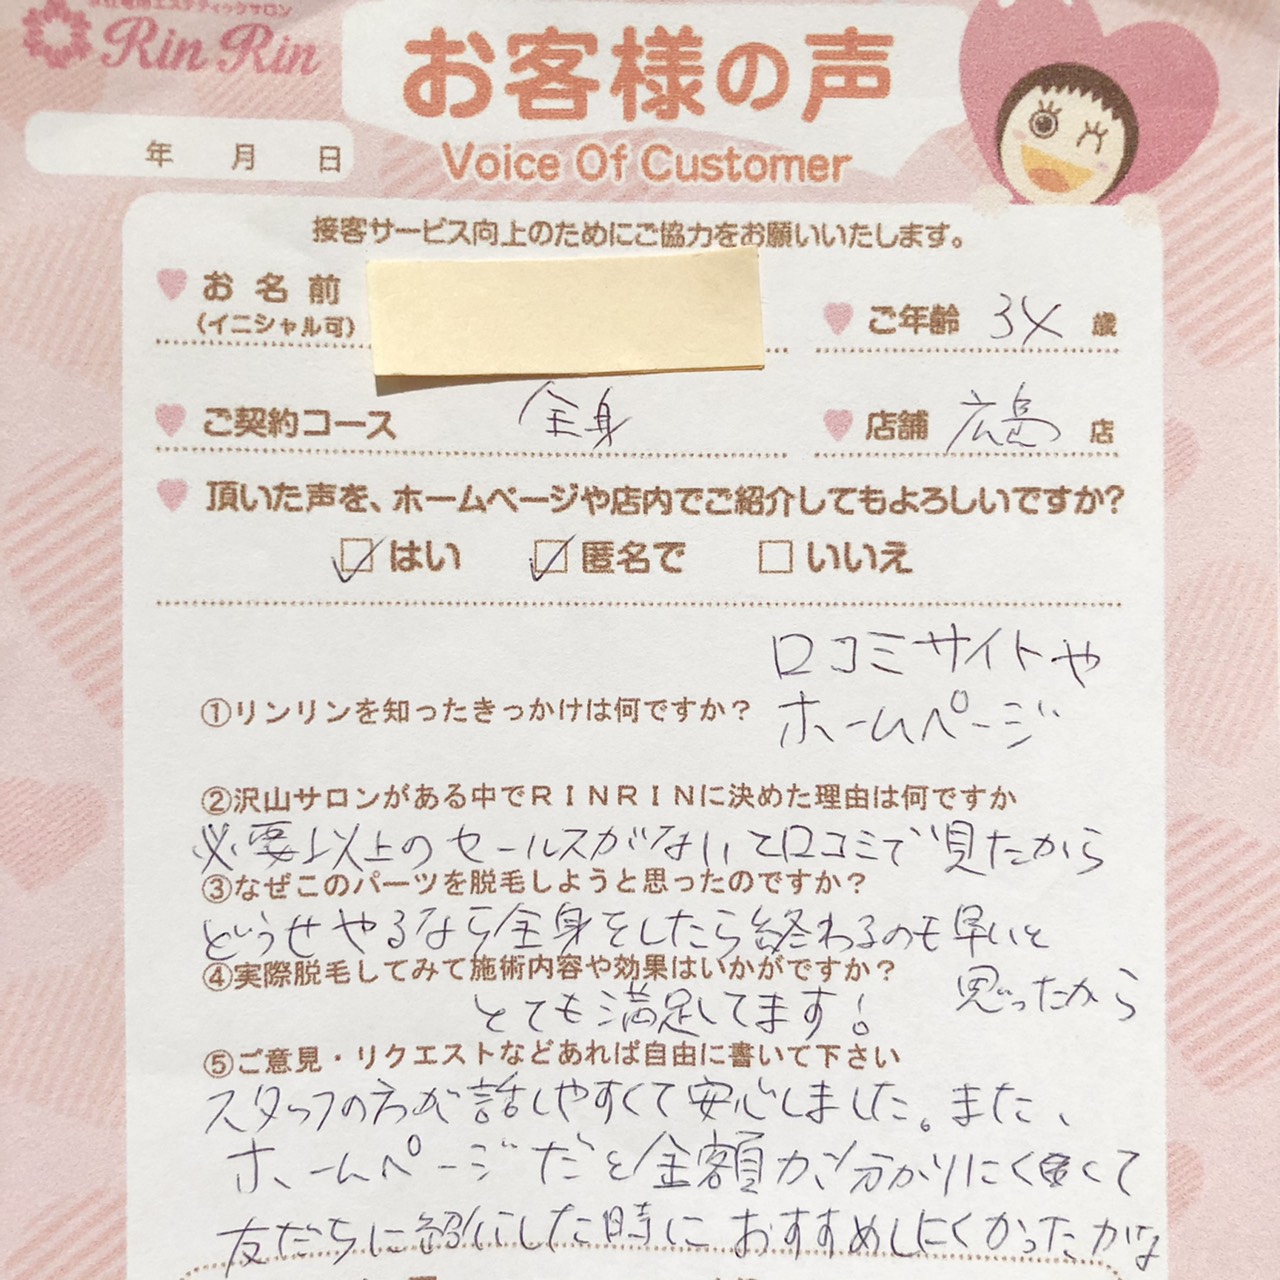 エステティックサロン
Rin Rin
お客様の声
Voice Of Customer
年 月 日
接客サービス向上のためにご協力をお願いいたします。
お名前
(イニシャル可)
ご年齢 34 歳
ご契約コース 全身
店舗 広島 店
頂いた声を、ホームページや店内でご紹介してもよろしいですか?
はい 匿名で いいえ
口コミサイトや
①リンリンを知ったきっかけは何ですか? ホームページ
②沢山サロンがある中でRINRINに決めた理由は何ですか
必要以上のセールスがないと口コミで見たから
③なぜこのパーツを脱毛しようと思ったのですか?
どうせやるなら全身をしたら終わるのも早いと
思ったから
④実際脱毛してみて施術内容や効果はいかがですか?
とても満足してます!
⑤ご意見・リクエストなどあれば自由に書いて下さい
スタッフの方が話しやすくて安心しました。また、
ホームページだと金額が分かりにくくて
友だちに紹介した時におすすめしにくかったかな